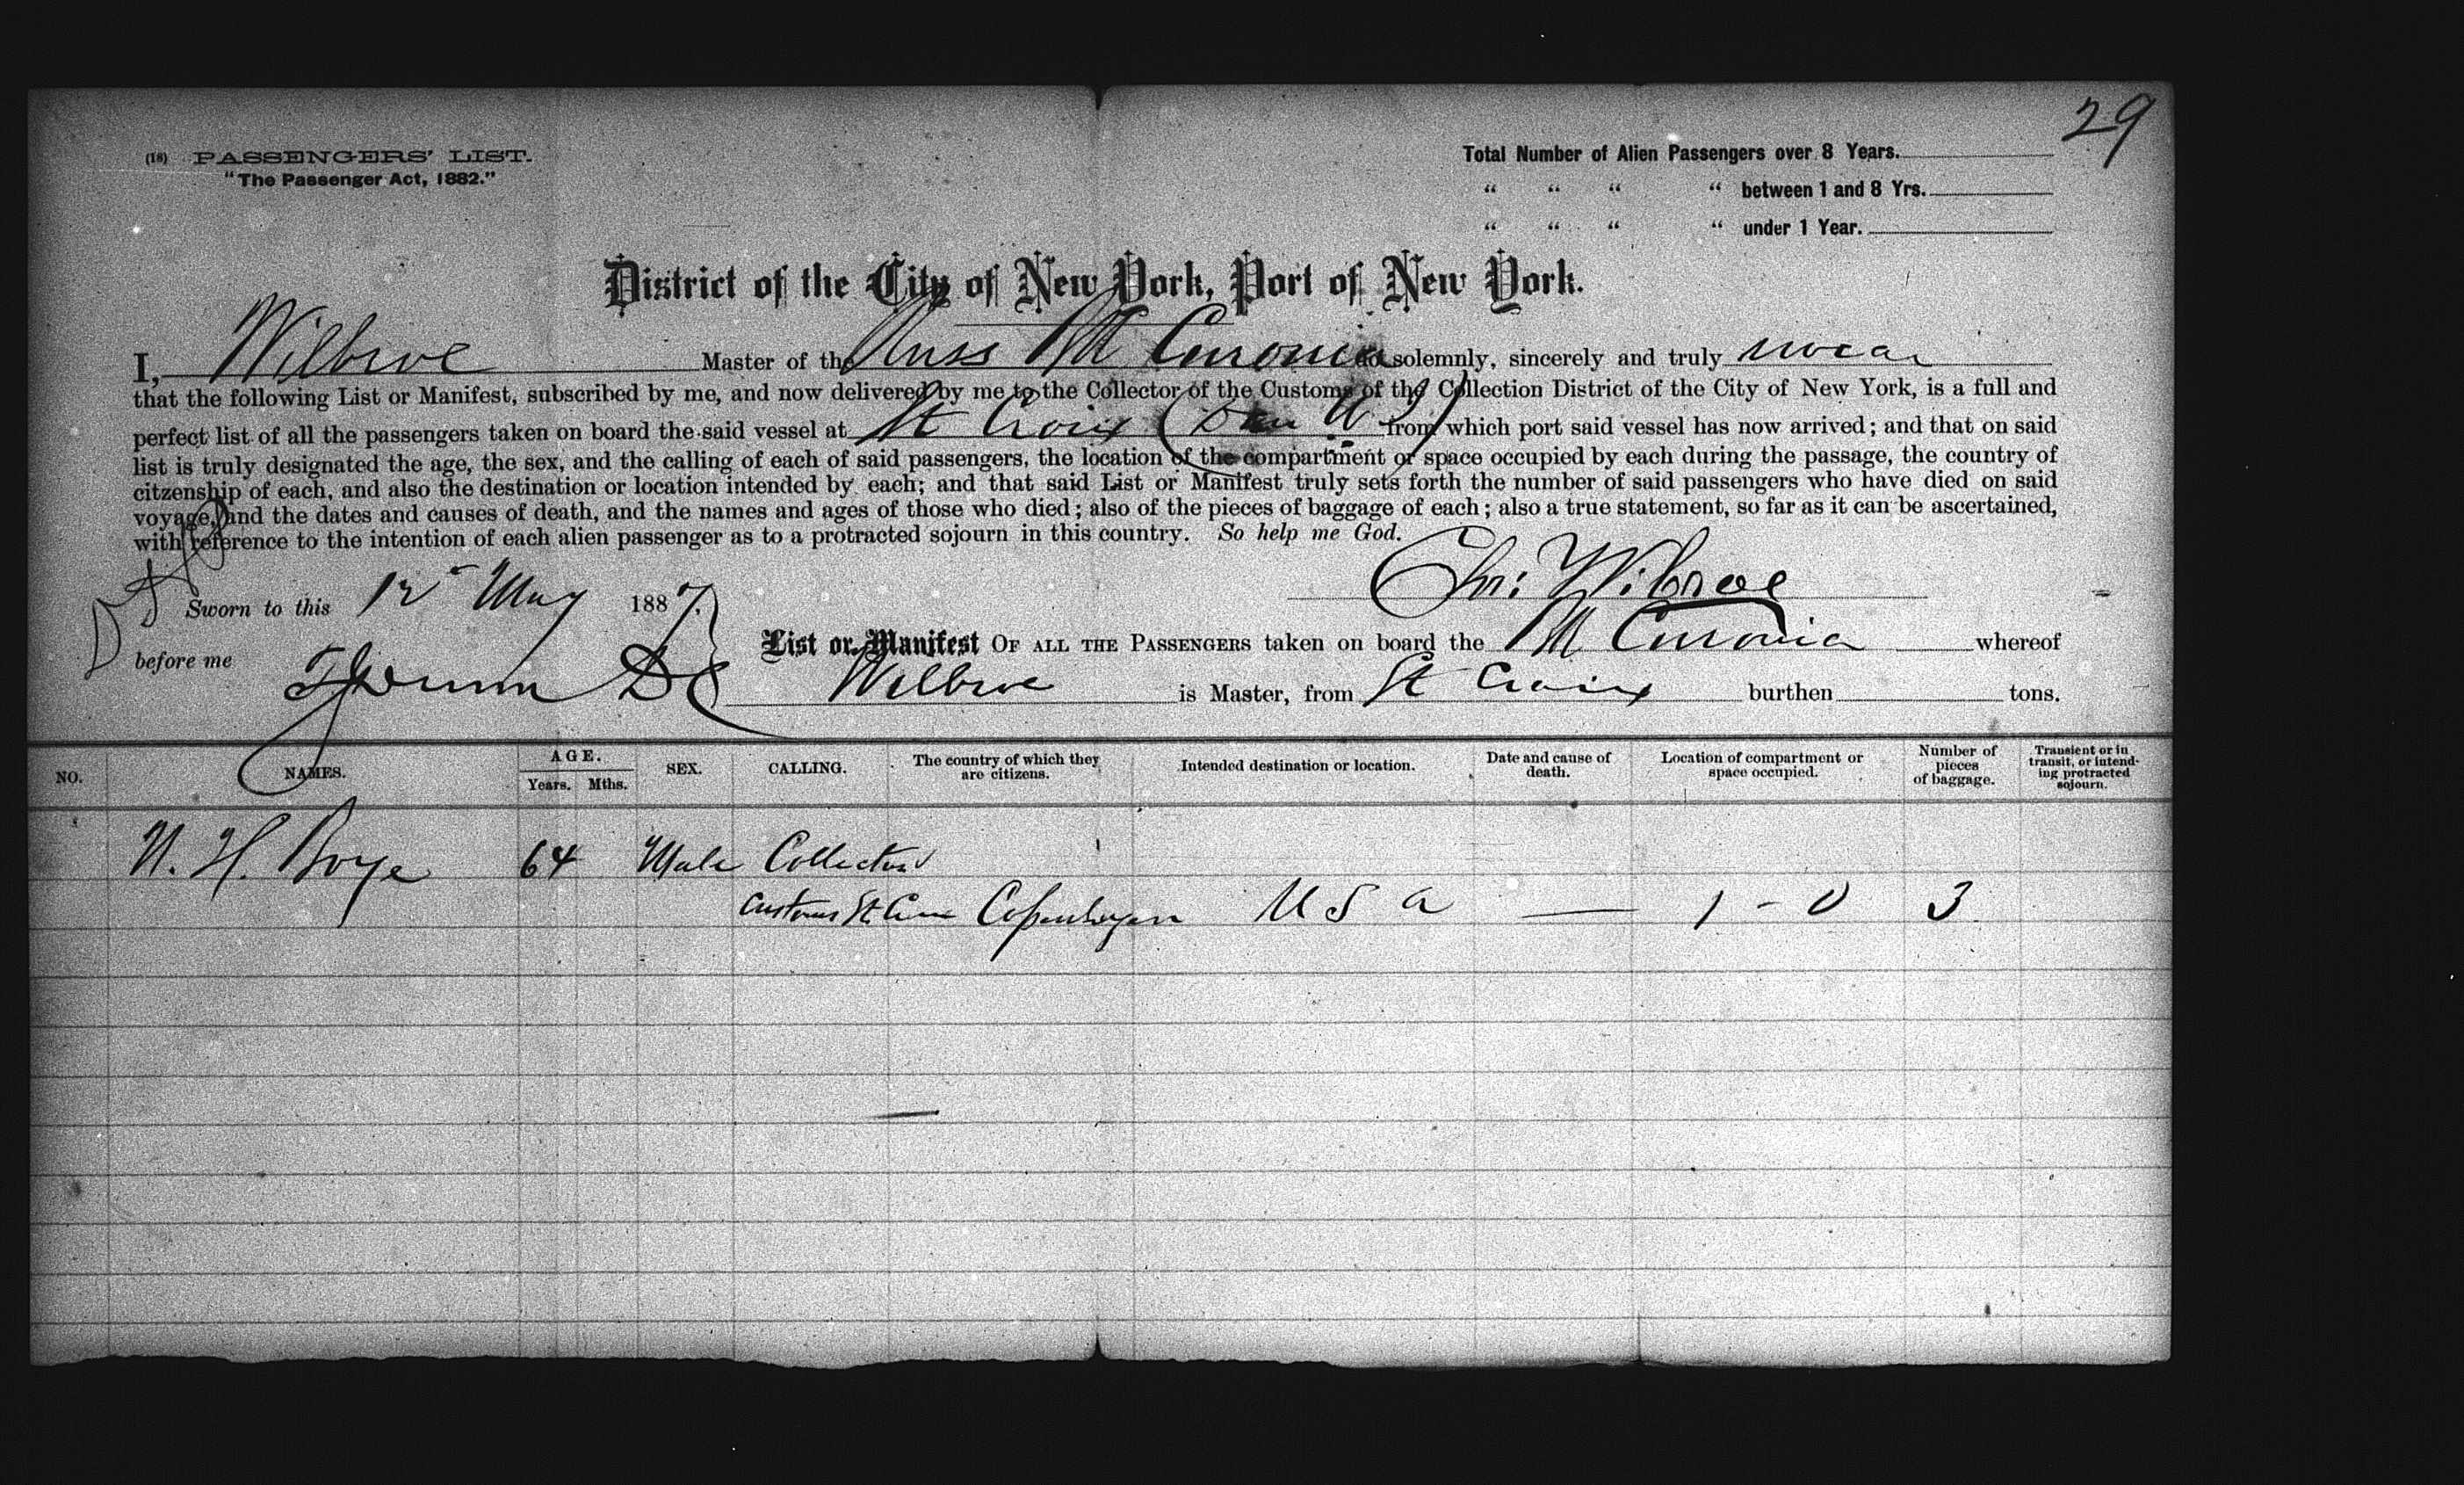 29
(18) PASSENGERS' LIST.
"The Passenger Act, 1882."
Total Number of Alien Passengers over 8 Years.
" " " " between 1 and 8 Yrs.
" " " " under 1 Year.
District of the City of New York, Port of New York.
I, Wilbroe Master of the Russ M Curonia do solemnly, sincerely and truly swear
that the following List or Manifest, subscribed by me, and now delivered by me to the Collector of the Customs of the Collection District of the City of New York, is a full and
perfect list of all the passengers taken on board the said vessel at St Croix (Dan W I) from which port said vessel has now arrived; and that on said
list is truly designated the age, the sex, and the calling of each of said passengers, the location of the compartment or space occupied by each during the passage, the country of
citzenship of each, and also the destination or location intended by each; and that said List or Manifest truly sets forth the number of said passengers who have died on said
voyage, and the dates and causes of death, and the names and ages of those who died; also of the pieces of baggage of each; also a true statement, so far as it can be ascertained,
with reference to the intention of each alien passenger as to a protracted sojourn in this country. So help me God.
Chr: Wibroe
Sworn to this 12 May 1887.
before me
List or Manifest OF ALL THE PASSENGERS taken on board the M Curonia whereof
Wilbroe is Master, from St Croix burthen tons.
NO. NAMES. AGE. Years. Mths. SEX. CALLING. The country of which they are citizens. Intended destination or location. Date and cause of death. Location of compartment or space occupied. Number of pieces of baggage. Transient or in transit, or intending protracted sojourn.
N. H. Boye 64 Male Collector
Customs St Croix Copenhagen U S A — 1 - 0 3